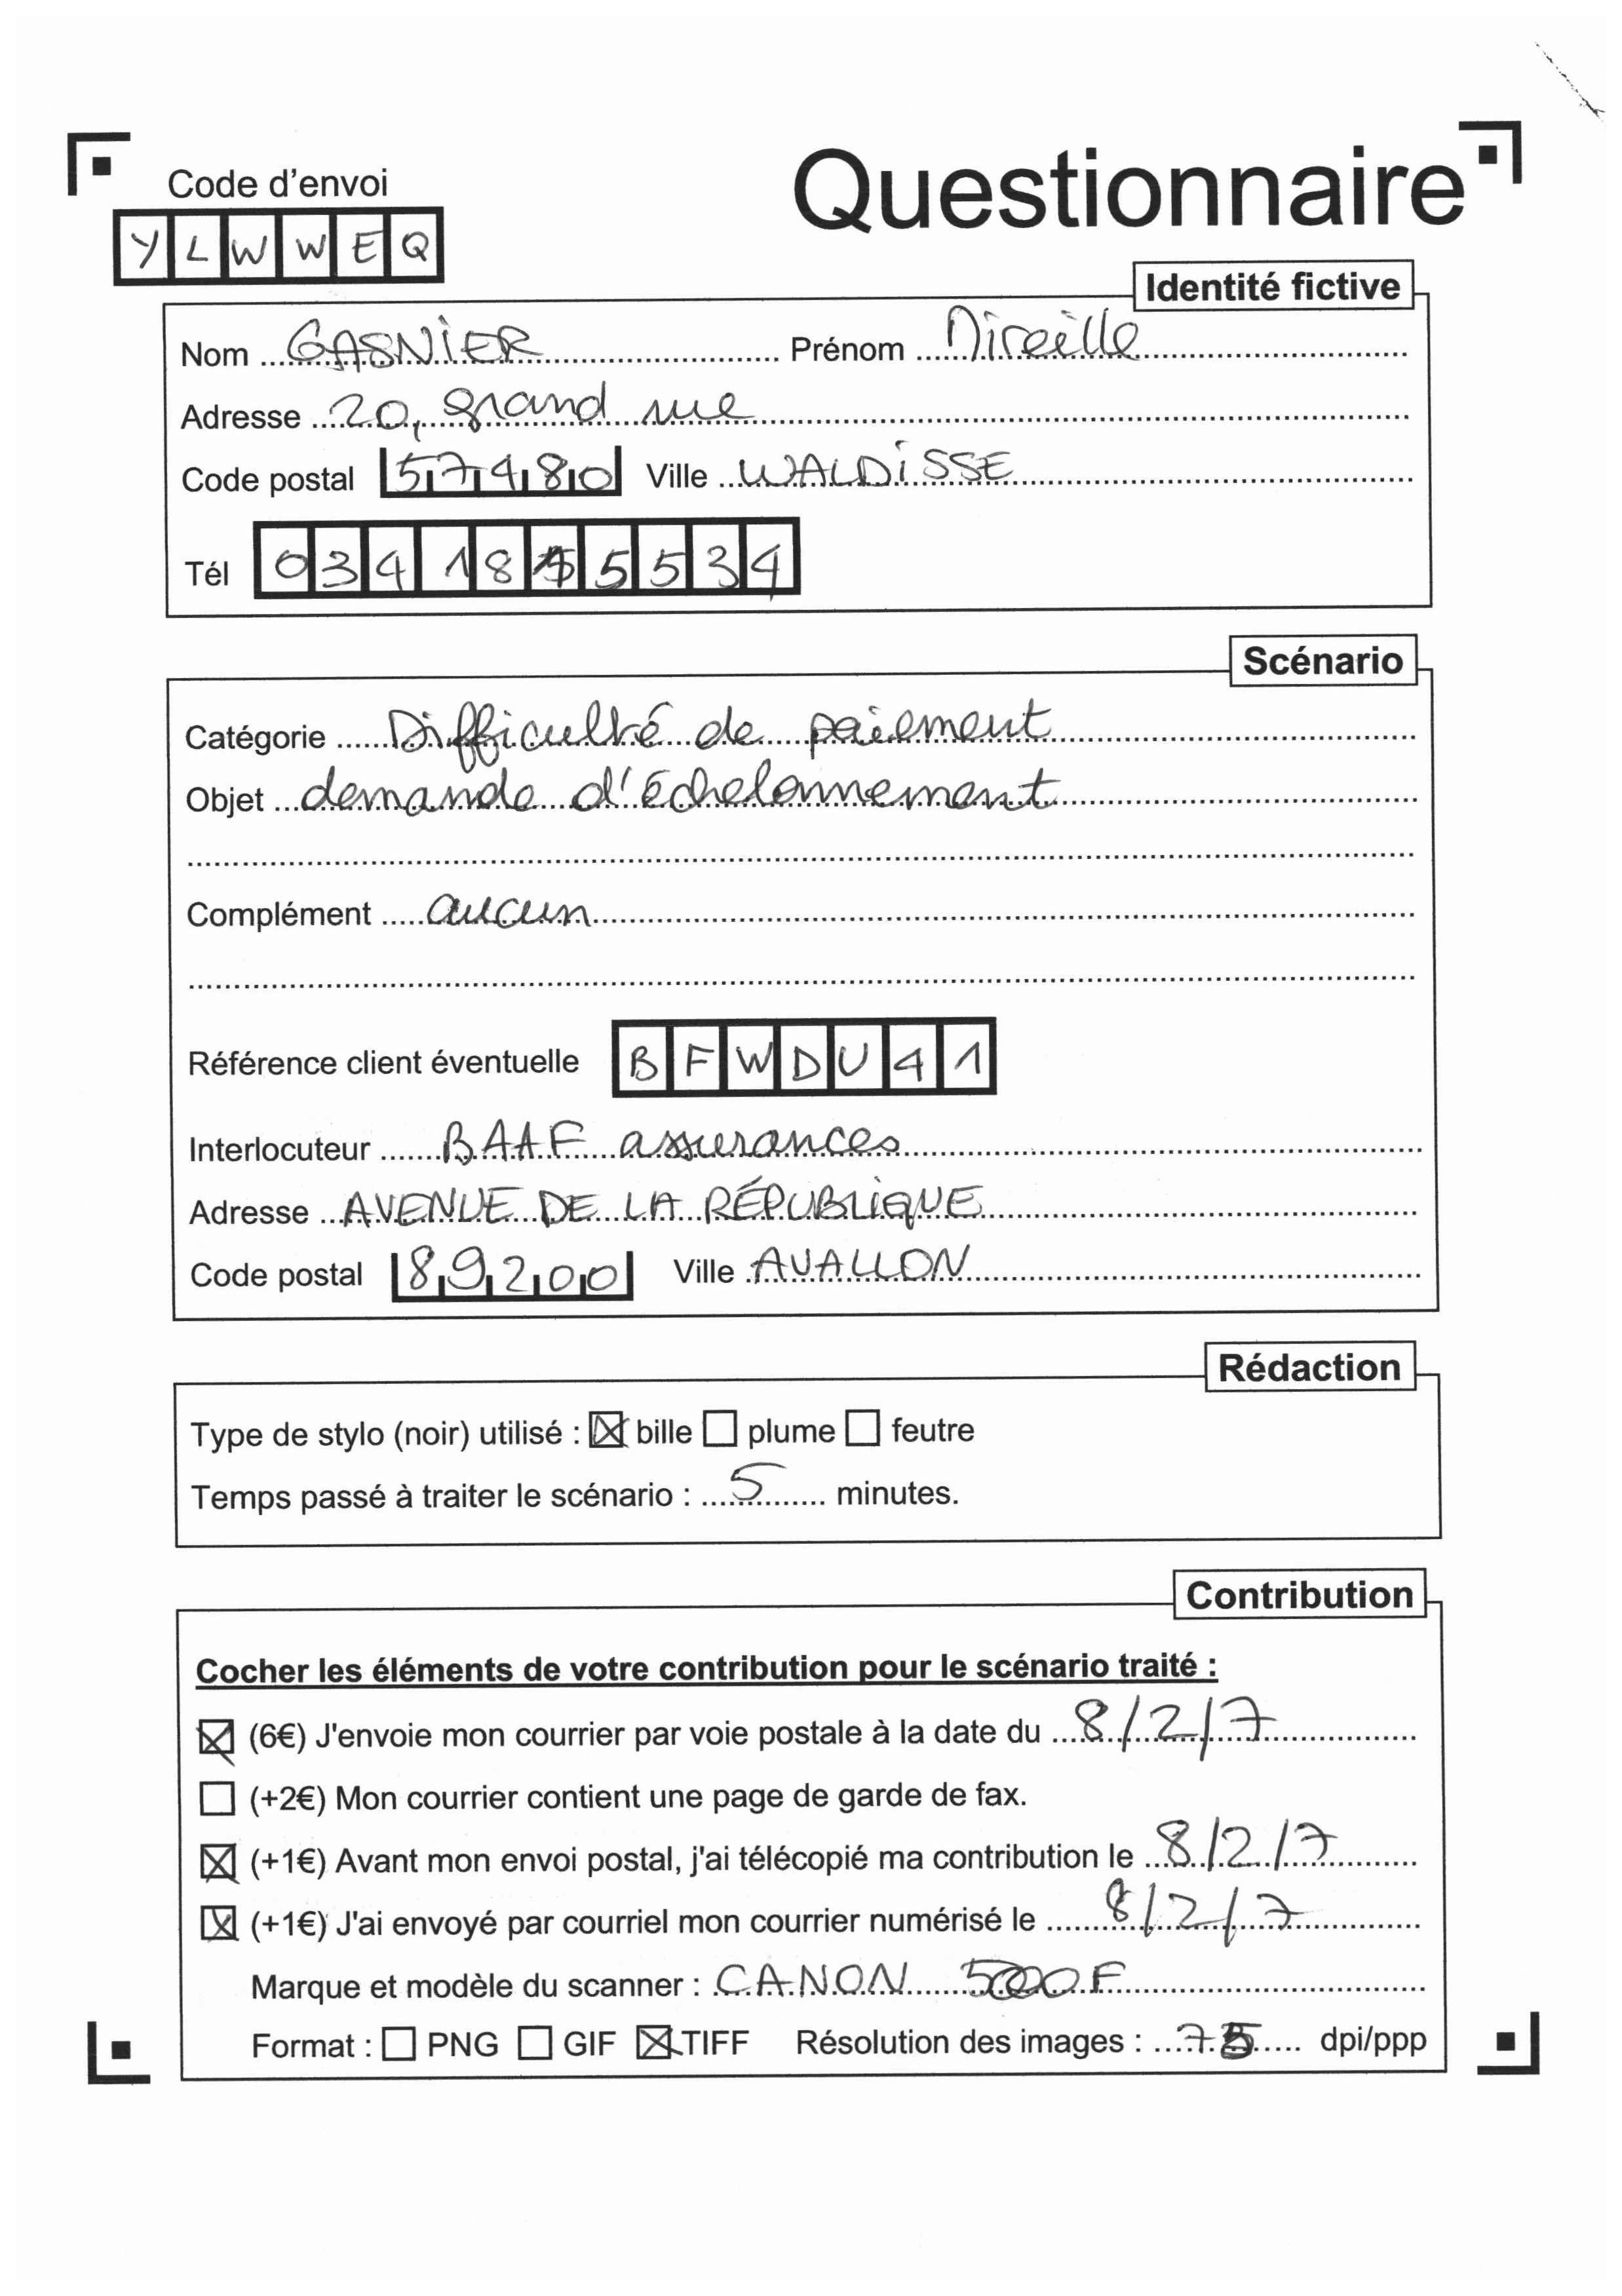 Code d'envoi
Questionnaire
YLWWEQ
Identité fictive
Nom GASNIER Prénom Mireille
Adresse 20, grand rue
Code postal 57480 Ville WALDISSE
Tél 0341855534
Scénario
Catégorie Difficulté de paiement
Objet demande d'échelonnement
Complément aucun
Référence client éventuelle BFWDU41
Interlocuteur BAAF assurances
Adresse AVENUE DE LA RÉPUBLIQUE
Code postal 89200 Ville AVALLON
Rédaction
Type de stylo (noir) utilisé : bille plume feutre
Temps passé à traiter le scénario : 5 minutes.
Contribution
Cocher les éléments de votre contribution pour le scénario traité :
(6€) J'envoie mon courrier par voie postale à la date du 8/2/7
(+2€) Mon courrier contient une page de garde de fax.
(+1€) Avant mon envoi postal, j'ai télécopié ma contribution le 8/2/7
(+1€) J'ai envoyé par courriel mon courrier numérisé le 8/2/7
Marque et modèle du scanner : CANON 5000F
Format : PNG GIF TIFF Résolution des images : 75 dpi/ppp